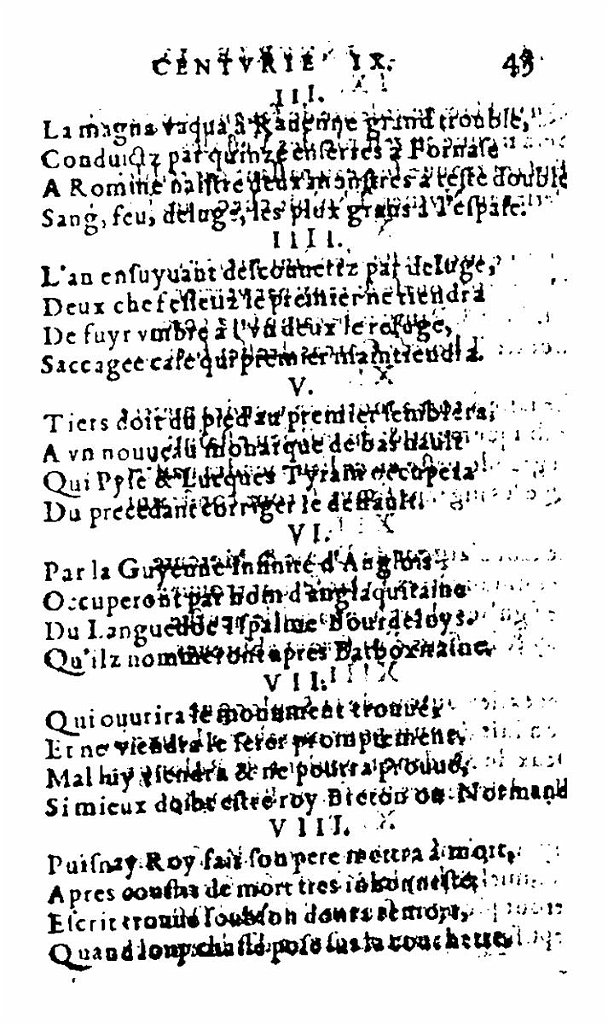 CENTVRIE IX. 49
III.
La magna vaqua à Rauenne grand trouble,
Conduictz par quinze enserrés à Fornase
A Rome naistre deux monstres à teste double
Sang, feu, deluge, les plus grans à l'espase.
IIII.
L'an ensuyuant descouuertz par deluge,
Deux chefs esleuz le premier ne tiendra
De fuyr vmbre à l'vn deux le refuge,
Saccagee case qui premier maintiendra.
V.
Tiers doit du pied au premier semblera,
A vn nouueau monarque de bas hault
Qui Pyse & Lucques Tyran occupera
Du precedant corriger le deffault.
VI.
Par la Guyenne infinité d'Anglois
Occuperont par nom d'anglaquitaine
Du Languedoc Ispalme Bourdeloys.
Qu'ilz nommeront apres Barboxitaine.
VII.
Qui ouurira le monument trouué,
Et ne viendra le serrer promptement,
Mal luy viendra & ne pourra prouué,
Si mieux doibt estre roy Breton ou Normand
VIII.
Puisnay Roy fait son pere mettra à mort,
Apres de mort tres inhonneste,
Escrit trouué soubson donra remort,
Quand loup chassé pose sus la couchette.